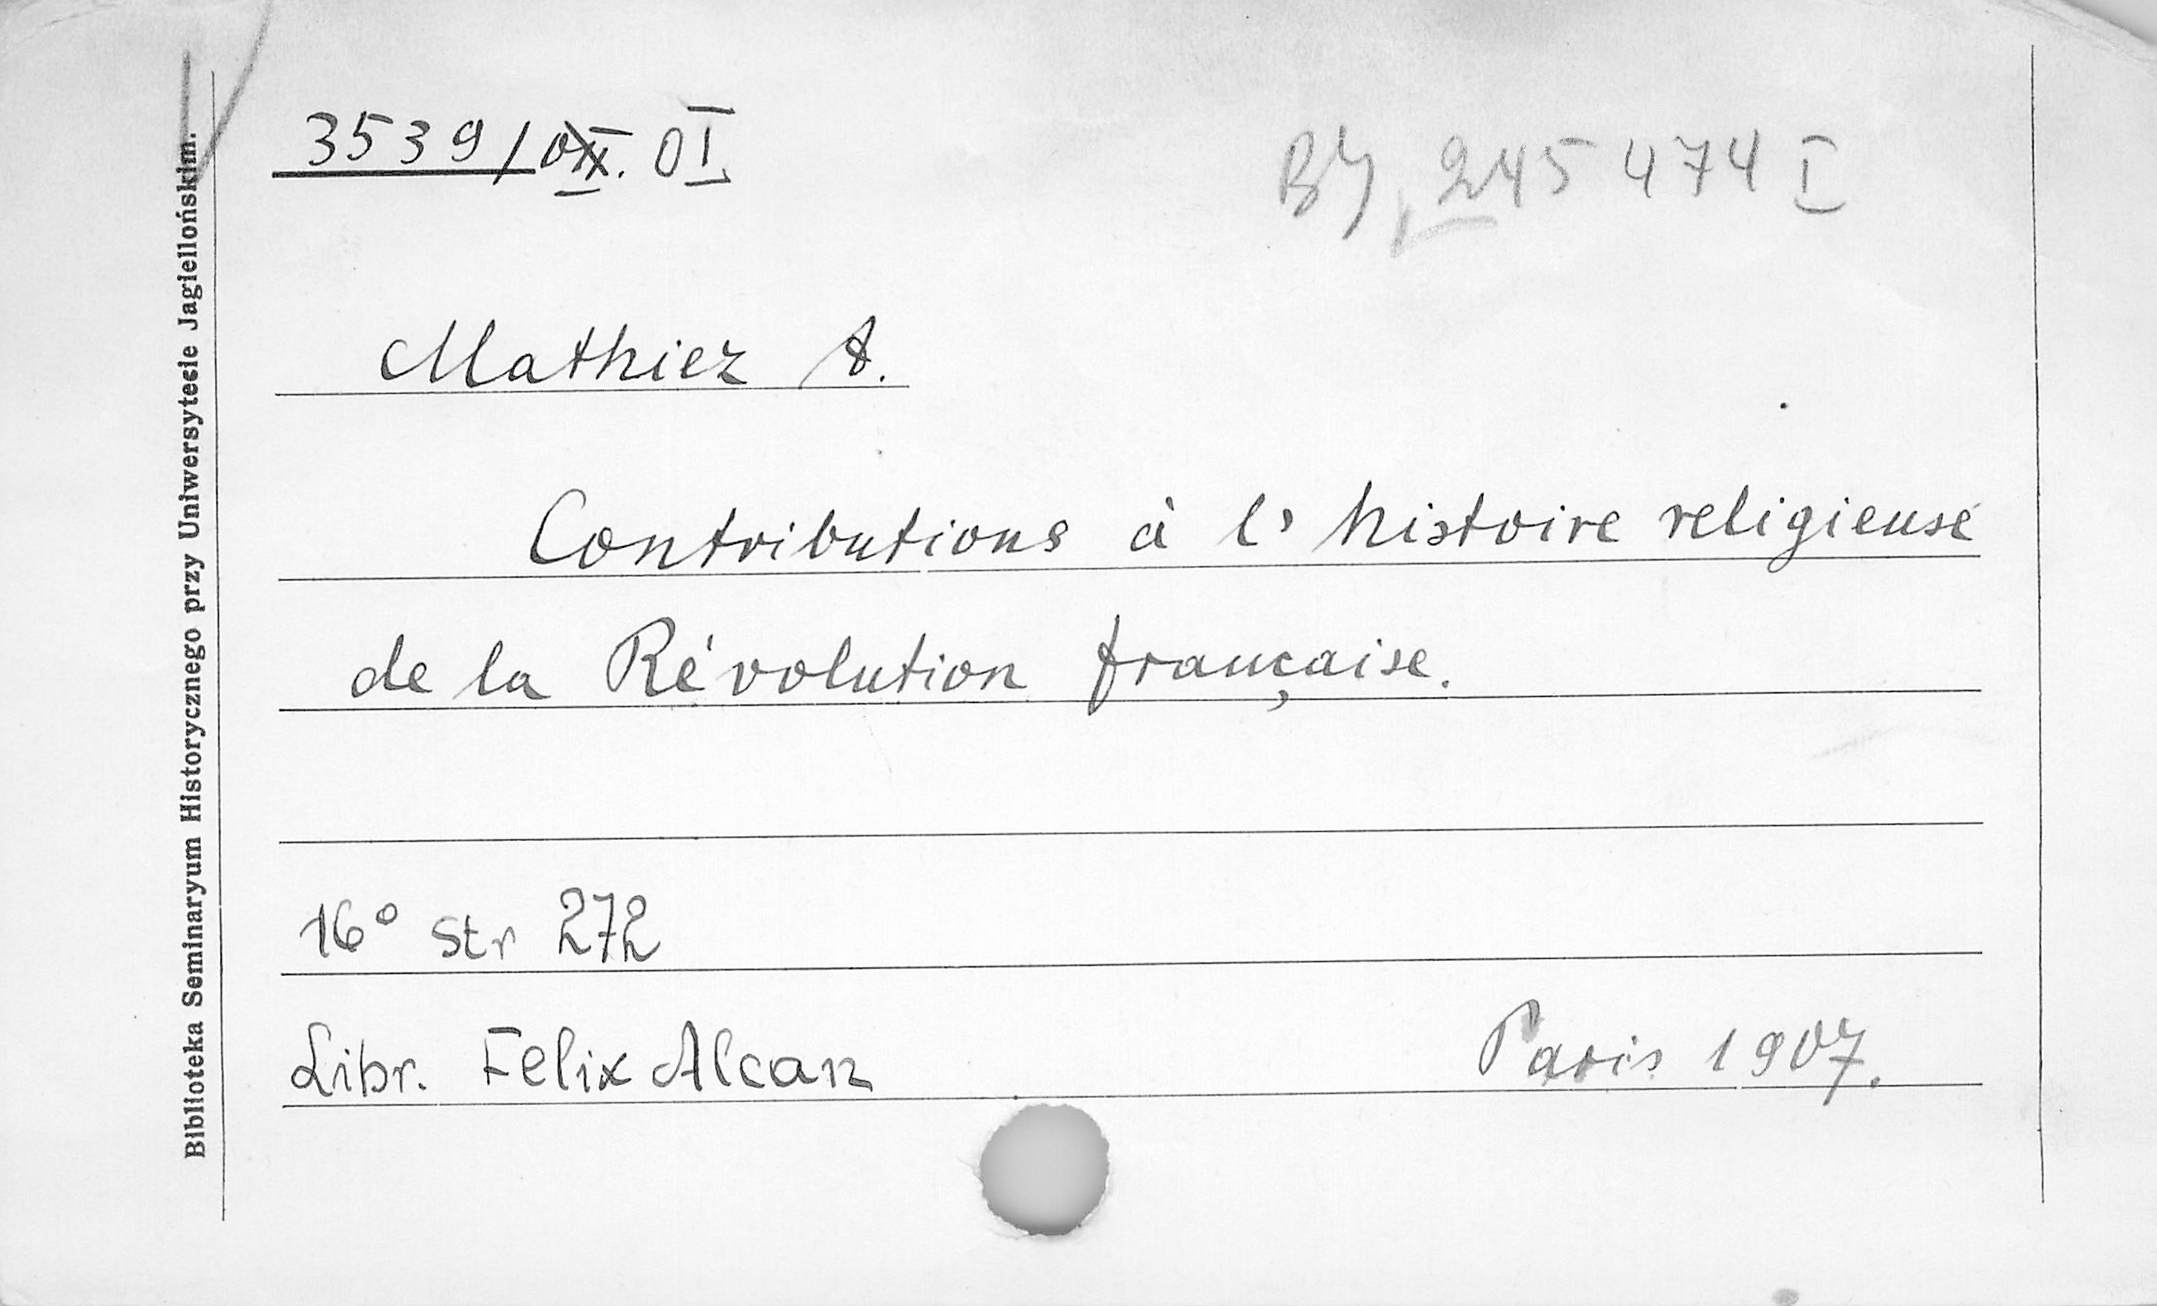 3539/ OI
BJ, 245 474 I
Mathiez A.
Contributions à l'histoire religieuse
de la Révolution française.
16° str 272
Libr. Felix Alcan Paris 1907.
Biblioteka Seminaryum Historycznego przy Uniwersytecie Jagiellońskim.